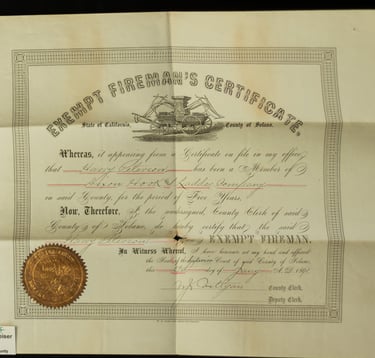 EXEMPT FIREMAN'S CERTIFICATE.
State of California, County of Solano.
Whereas, it appearing from a Certificate on file in my office
that Harry Peterson has been a Member of
Dixon Hook & Ladder Company
in said County, for the period of Five Years.
Now, Therefore, I, the undersigned, County Clerk of said
County of Solano, do hereby certify that the said
Harry Peterson EXEMPT FIREMAN.
In Witness Whereof, I have hereunto set my hand and affixed
the Seal of the Superior Court of said County of Solano,
this day of A.D. 19
County Clerk.
Deputy Clerk.